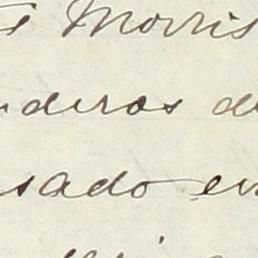 Morris
deros de
sado en